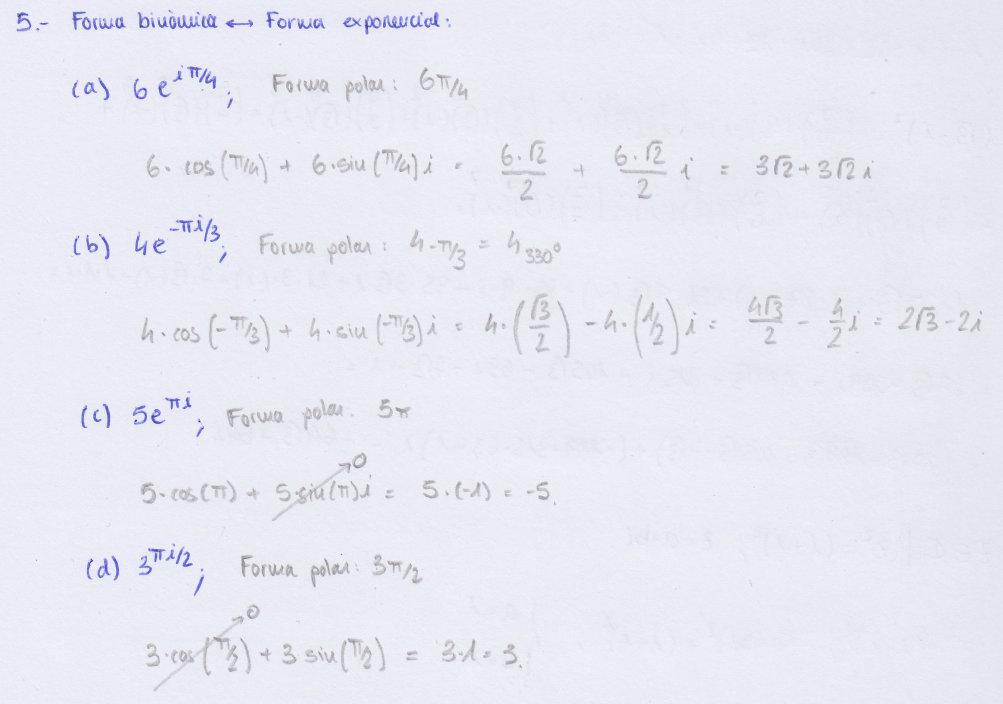 5.- Forma binómica ↔ Forma exponencial:
(a) 6 e^{iπ/4}; Forma polar: 6_{π/4}
6·cos(π/4) + 6·sin(π/4)i = \frac{6·√2}{2} + \frac{6·√2}{2} i = 3√2+3√2 i
(b) 4e^{-πi/3}; Forma polar: 4_{-π/3} = 4_{330°}
4·cos(-π/3) + 4·sin(-π/3)i = 4·(\frac{√3}{2}) - 4·(1/2)i = \frac{4√3}{2} - \frac{4}{2}i = 2√3-2i
(c) 5e^{πi}; Forma polar: 5_π
5·cos(π) + 5·sin(π)i → 0 = 5·(-1) = -5.
(d) 3^{πi/2}; Forma polar: 3_{π/2}
3·cos(π/2) → 0 + 3 sin(π/2) = 3·1 = 3.